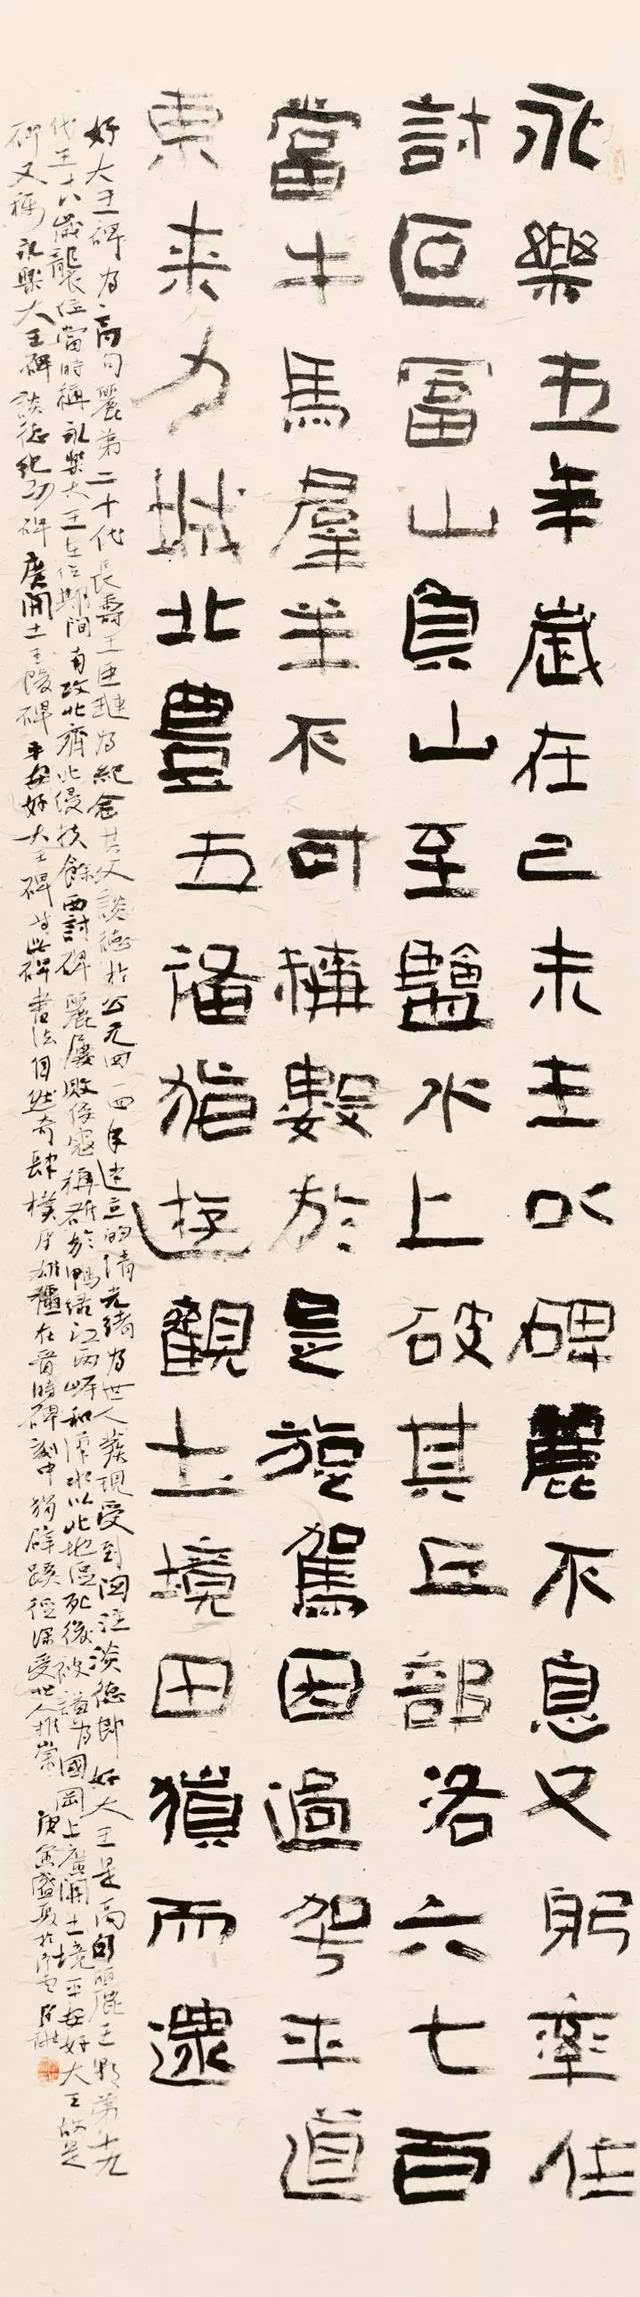 永樂五年歲在乙未王以碑麗不息又躬率住
討叵冨山負山至鹽水上破其丘部洛六七百
當牛馬羣羊不可稱數於是旋駕因過駕平道
東來力城北豊五備猶遊觀土境田獵而還
好大王碑为高句麗第二十代長壽王巨璉为紀念其父談德於公元四一四年建立的清光緒为世人發現受到関注談德即好大王是高句麗王朝第十九
代王十八歲襲位當時稱永樂大王在位期间南攻北齊北侵扶餘西討碑麗屢敗倭寇稱雄於鴨緑江两岸和以此地區死後被謚为國罡上廣開土境平安好大王故是
碑又稱永樂大王碑談德紀功碑廣開土王陵碑平安好大王碑等此碑書法自然奇肆樸厚雄彊在晉時碑刻中獨辟蹊徑深受世人推崇庚寅盛夏於